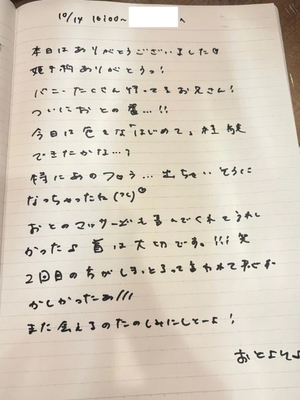 10/14 16:00~ へ
本日はありがとうございました
姫予約ありがとうっ!
バニーたくさん持ってるお兄さん!
ついにおとの番...!!
今日は色んな「はじめて」経験
できたかな...?
特にあのフェラ...出ちゃいそうに
なっちゃったね
おとのマッサージも喜んでくれてうれし
かった♪首は大切です。!!!笑
2回目の方がしまっとるって言われて
かしかったぁ///
また会えるのたのしみにしとーよ!
おとより♪